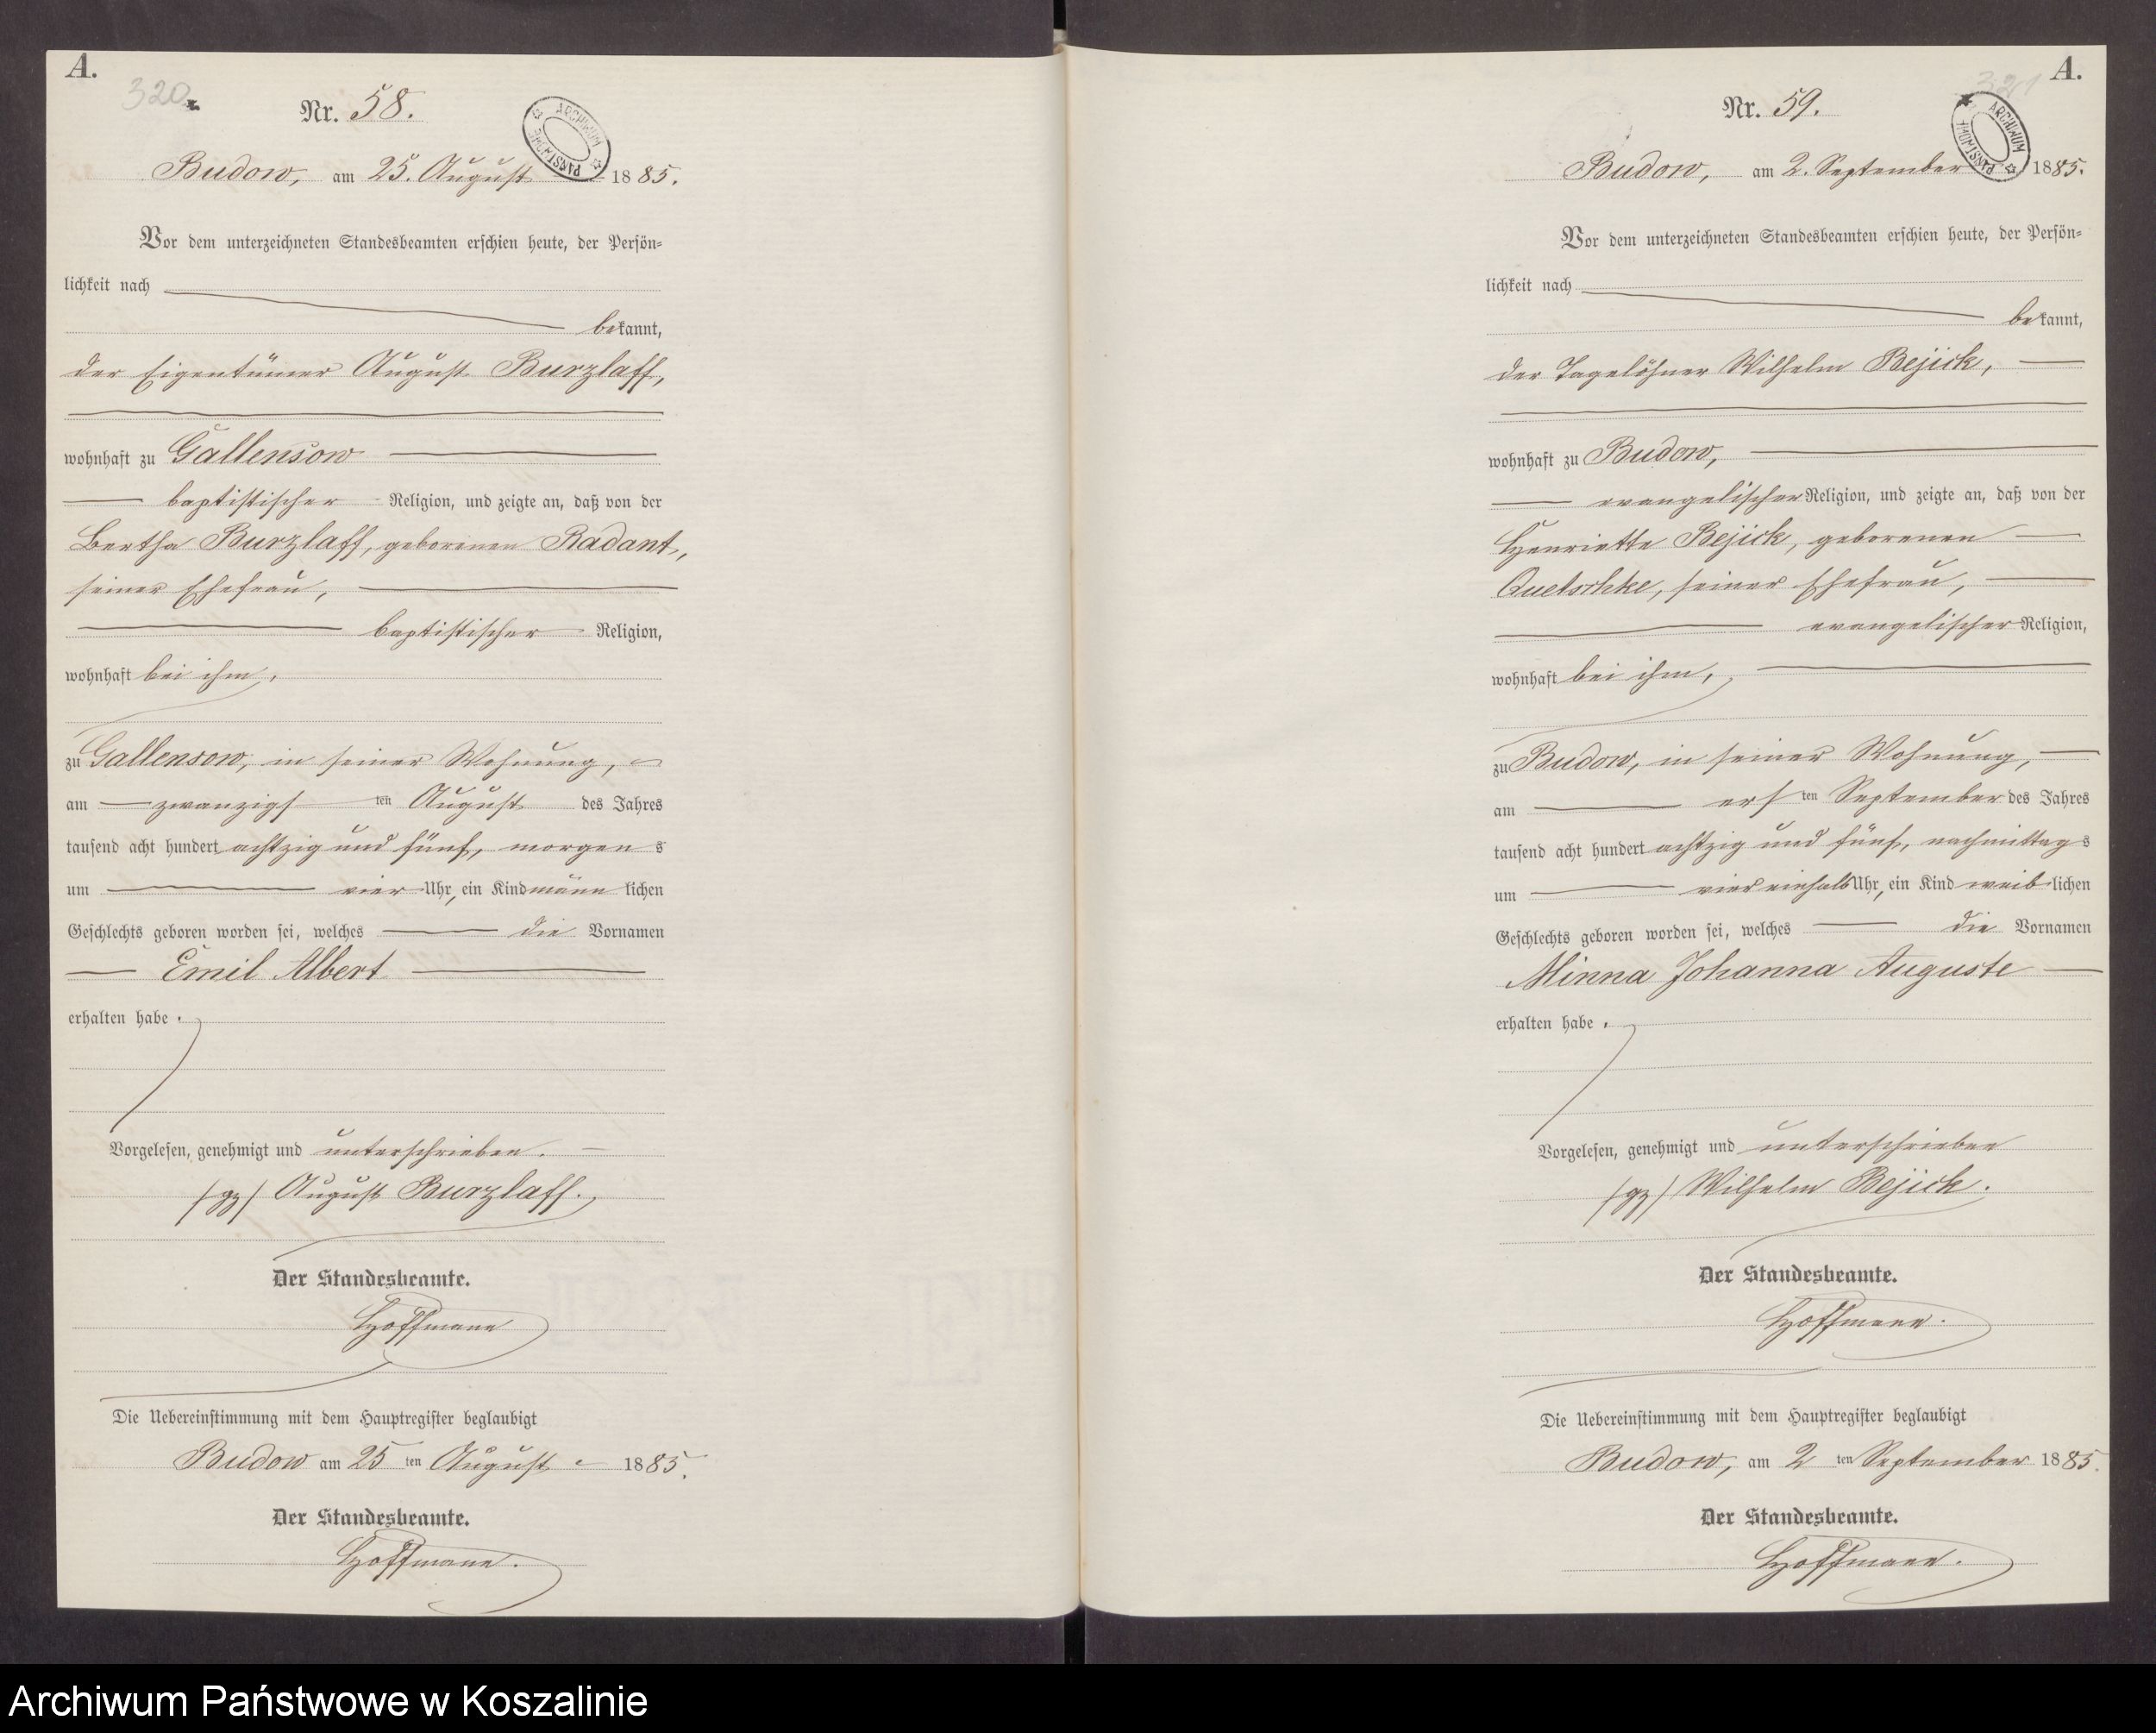 A.
320
Nr. 58.
ARCHIWUM PAŃSTWOWE
Budow, am 25. August 1885.
Vor dem unterzeichneten Standesbeamten erschien heute, der Persön=
lichkeit nach
bekannt,
der Eigentümer August Burzlaff,
wohnhaft zu Gallensow
baptistischer Religion, und zeigte an, daß von der
Bertha Burzlaff, geborenen Radant,
seiner Ehefrau,
baptistischer Religion,
wohnhaft bei ihm,
zu Gallensow, in seiner Wohnung,
am zwanzigsten August des Jahres
tausend acht hundert achtzig und fünf, morgens
um vier Uhr, ein Kind männlichen
Geschlechts geboren worden sei, welches die Vornamen
Emil Albert
erhalten habe.
Vorgelesen, genehmigt und unterschrieben.
(gz) August Burzlaff.
Der Standesbeamte.
Hoffmann
Die Uebereinstimmung mit dem Hauptregister beglaubigt
Budow am 25ten August 1885.
Der Standesbeamte.
Hoffmann.
A.
321
Nr. 59.
ARCHIWUM PAŃSTWOWE
Budow, am 2. September 1885.
Vor dem unterzeichneten Standesbeamten erschien heute, der Persön=
lichkeit nach
bekannt,
der Tagelöhner Wilhelm Bejick,
wohnhaft zu Budow,
evangelischer Religion, und zeigte an, daß von der
Henriette Bejick, geborenen
Quetschke, seiner Ehefrau,
evangelischer Religion,
wohnhaft bei ihm,
zu Budow, in seiner Wohnung,
am ersten September des Jahres
tausend acht hundert achtzig und fünf, nachmittags
um vier einhalb Uhr, ein Kind weiblichen
Geschlechts geboren worden sei, welches die Vornamen
Minna Johanna Auguste
erhalten habe.
Vorgelesen, genehmigt und unterschrieben
(gz) Wilhelm Bejick.
Der Standesbeamte.
Hoffmann.
Die Uebereinstimmung mit dem Hauptregister beglaubigt
Budow, am 2ten September 1885.
Der Standesbeamte.
Hoffmann.
Archiwum Państwowe w Koszalinie